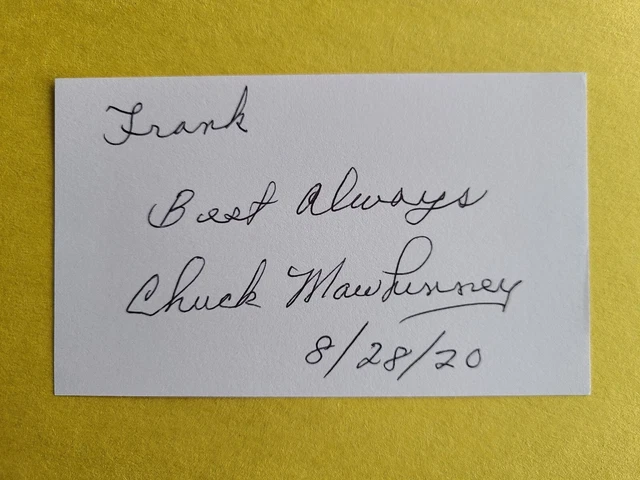 Frank
Best Always
Chuck Mawhinney
8/28/20